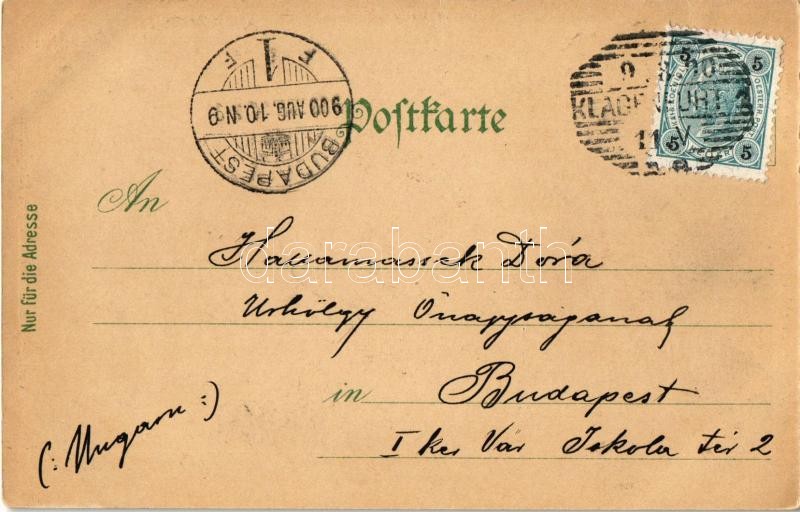 Postkarte
BUDAPEST
900 AUG. 10. N 9
F 1 F
KLAGENFURT
5 5
5 5
An
Nur für die Adresse
Dóra
Urhölgy Önagyságanak
in Budapest
I ker Vár Iskola tér 2
(: Ungarn :)
darabanth